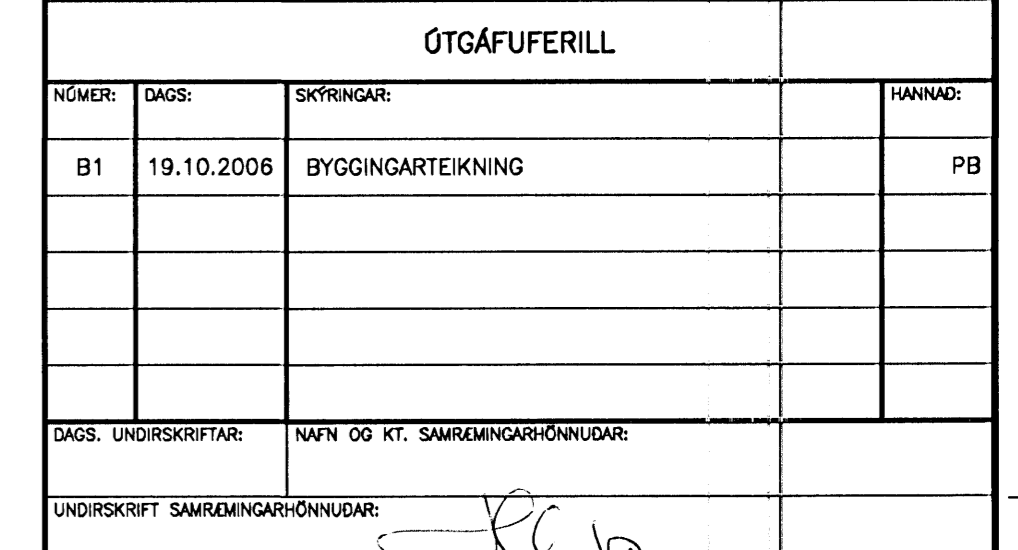 ÚTGÁFUFERILL
NÚMER: DAGS: SKÝRINGAR: HANNAÐ:
B1 19.10.2006 BYGGINGARTEIKNING PB
DAGS. UNDIRSKRIFTAR: NAFN OG KT. SAMRÆMINGARHÖNNUÐAR:
UNDIRSKRIFT SAMRÆMINGARHÖNNUÐAR: